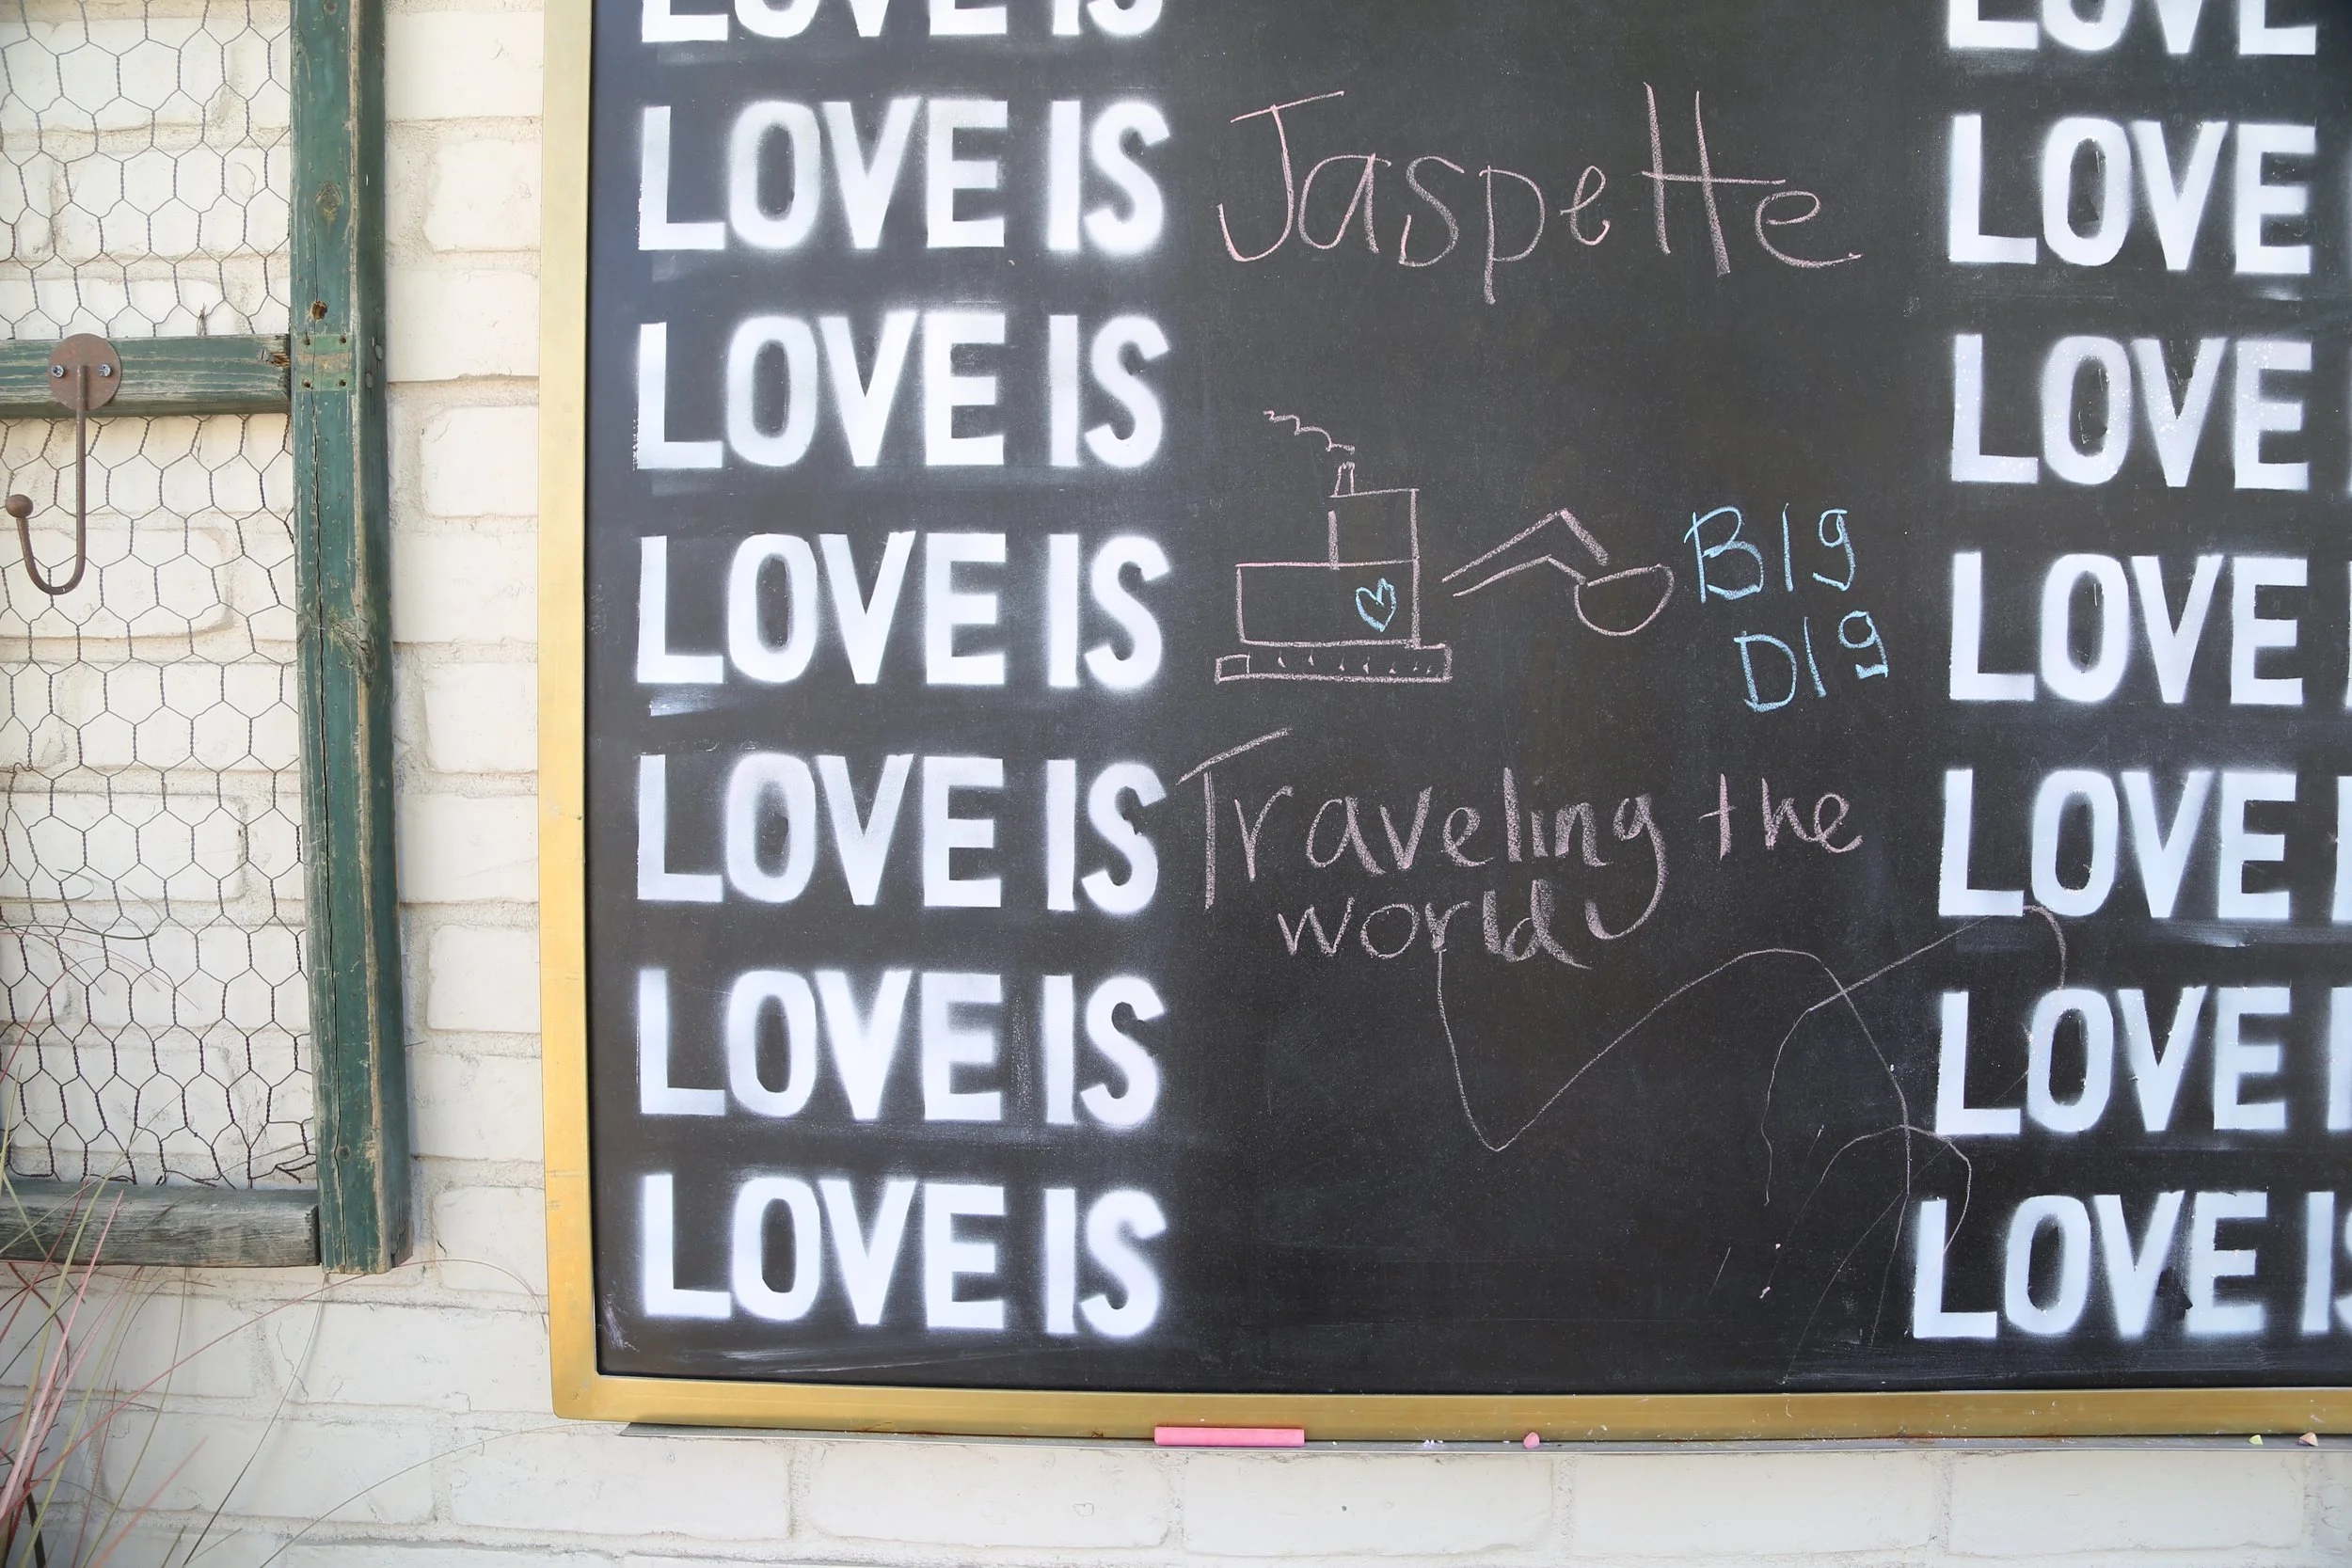 LOVE IS
LOVE
LOVE IS Jaspette
LOVE
LOVE IS
LOVE
LOVE IS
BIg
DIg
LOVE
LOVE IS Traveling the
world
LOVE
LOVE IS
LOVE
LOVE IS
LOVE IS